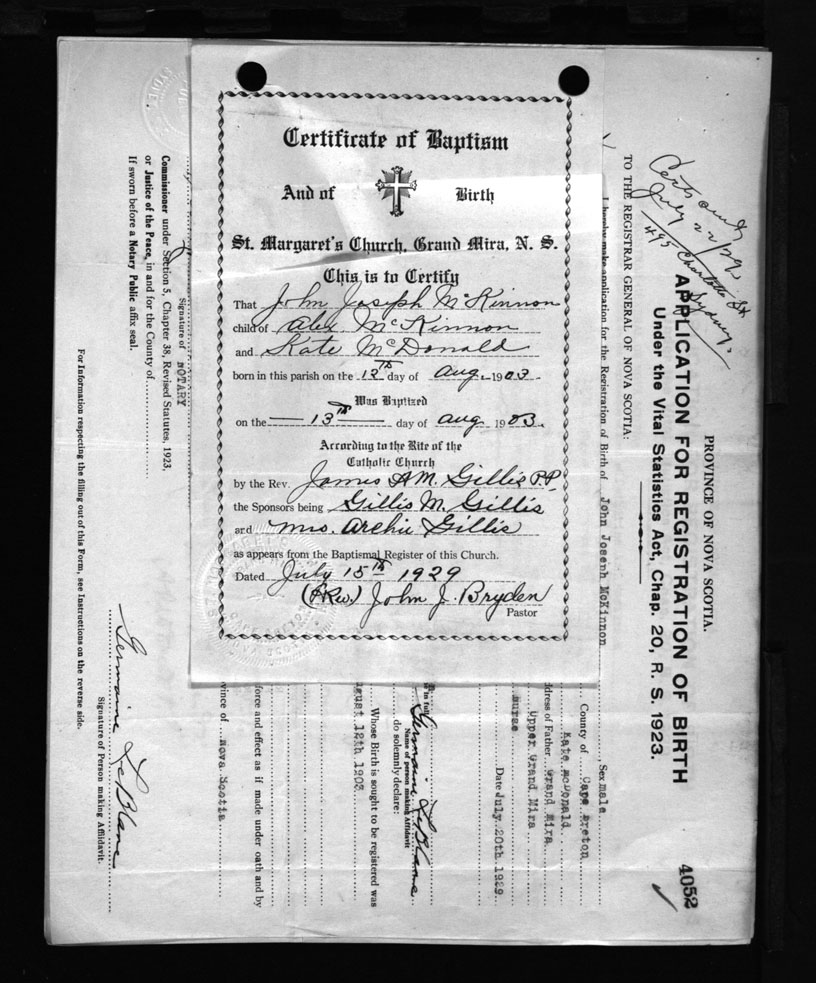 Certificate of Baptism
And of Birth
St. Margaret's Church, Grand Mira, N. S.
This is to Certify
That John Joseph McKinnon
child of Alex McKinnon
and Kate McDonald
born in this parish on the 12th day of Aug. 1903.
Was Baptized
on the 13th day of Aug 1903.
According to the Rite of the
Catholic Church
by the Rev. James A M. Gillis P.P.
the Sponsors being Gillis M. Gillis
and Mrs. Archie Gillis
as appears from the Baptismal Register of this Church.
Dated July 15th 1929
(Rev) John J. Bryden
Pastor
PROVINCE OF NOVA SCOTIA.
APPLICATION FOR REGISTRATION OF BIRTH
Under the Vital Statistics Act, Chap. 20, R. S. 1923.
4052
July 22/29
495 Charlotte St
Sydney.
TO THE REGISTRAR GENERAL OF NOVA SCOTIA:
I hereby make application for the Registration of Birth of John Joseph McKinnon
Sex male
County of Cape Breton
Kate McDonald
ddress of Father Grand Mira
Upper Grand Mira
nurse
Date July 20th 1929.
in full
Germaine LeBlanc
Name of person making Affidavit
do solemnly declare:
Whose Birth is sought to be registered was
ugust 12th 1903
force and effect as if made under oath and by
vince of Nova Scotia
Signature of NOTARY
Commissioner under Section 5, Chapter 38, Revised Statutes, 1923,
or Justice of the Peace, in and for the County of
If sworn before a Notary Public affix seal.
Germaine LeBlanc
Signature of Person making Affidavit.
For Information respecting the filling out of this Form, see Instructions on the reverse side.